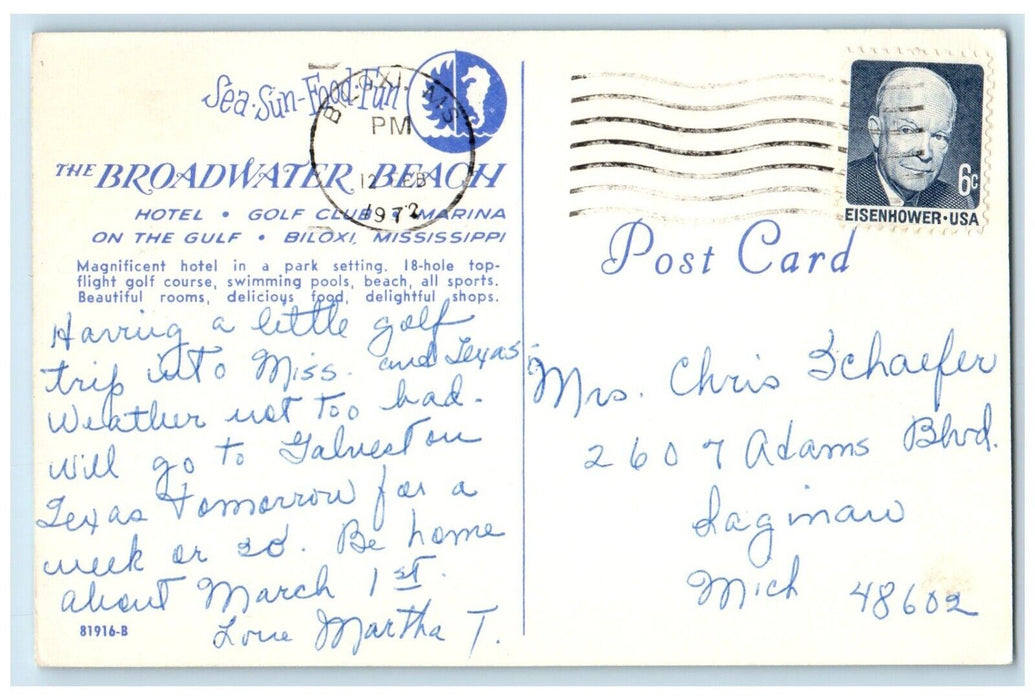 Sea·Sun-Food-Fun
BILOXI, MIS
PM
12 FEB
1972
THE BROADWATER BEACH
HOTEL • GOLF CLUB • MARINA
ON THE GULF • BILOXI, MISSISSIPPI
Magnificent hotel in a park setting. 18-hole top-
flight golf course, swimming pools, beach, all sports.
Beautiful rooms, delicious food, delightful shops.
Having a little golf
trip into Miss. and Texas.
Weather not too bad.
will go to Galveston
Texas tomorrow for a
week or so. Be home
about March 1st.
Love Martha T.
81916-B
6c
EISENHOWER·USA
Post Card
Mrs. Chris Schaefer
2607 Adams Blvd.
Saginaw
Mich 48602